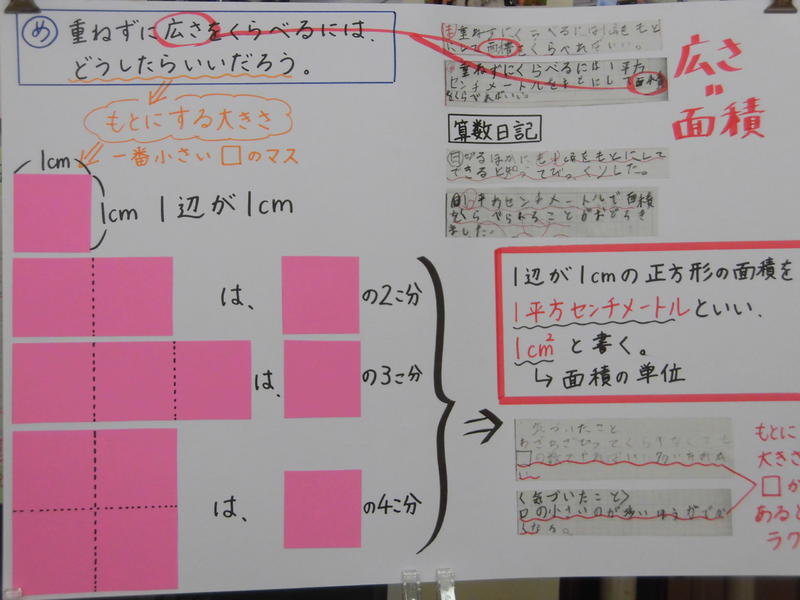 め 重ねずに広さをくらべるには、
どうしたらいいだろう。
もとにする大きさ
一番小さい□のマス
1cm
1cm
1辺が1cm
は、 の2こ分
は、 の3こ分
は、 の4こ分
重ねずにくらべるには
にして面積をくらべればいい。
重ねずにくらべるには1平方
センチメートルをもとにして面積
をくらべればいい。
広さ
〃
面積
算数日記
できると知ってびっくりした。
平方センチメートルで面積
をくらべられることがおどろき
ました。
1辺が1cmの正方形の面積を
1平方センチメートルといい、
1cm²と書く。
↳面積の単位
気づいたこと
〈気づいたこと〉
口の小さいのが多いほうが
もとに
大きさ
□が
あると
ラク